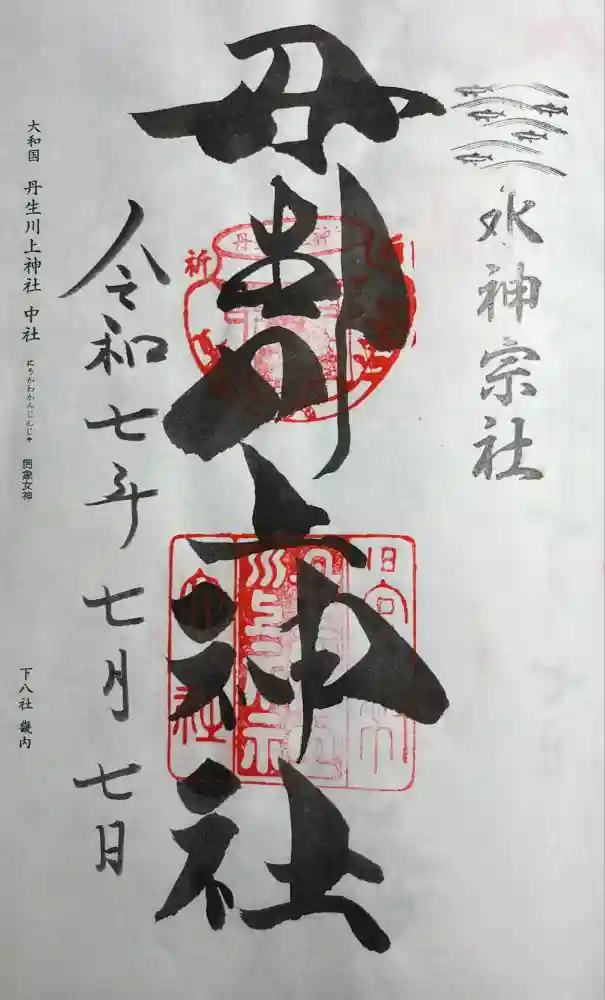 水神宗社
丹生川上神社
祈
令和七年七月七日
大和国 丹生川上神社 中社 にうかわかんじんじゃ 罔象女神
下八社 畿内